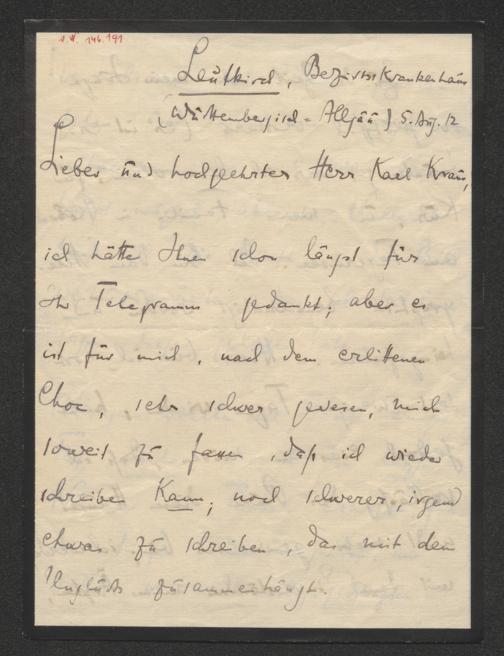 I.N. 146.191
Leutkirch, Bezirkskrankenhaus
(Württembergisch-Allgäu) 5. Aug. 12
Lieber und hochgeehrter Herr Karl Kraus,
ich hätte Ihnen schon längst für
Ihr Telegramm gedankt; aber es
ist für mich, nach dem erlittenen
Choc, sehr schwer gewesen, mich
soweit zu fassen, daß ich wieder
schreiben kann; noch schwerer, irgend
etwas zu schreiben, das mit dem
Unglück zusammenhängt.